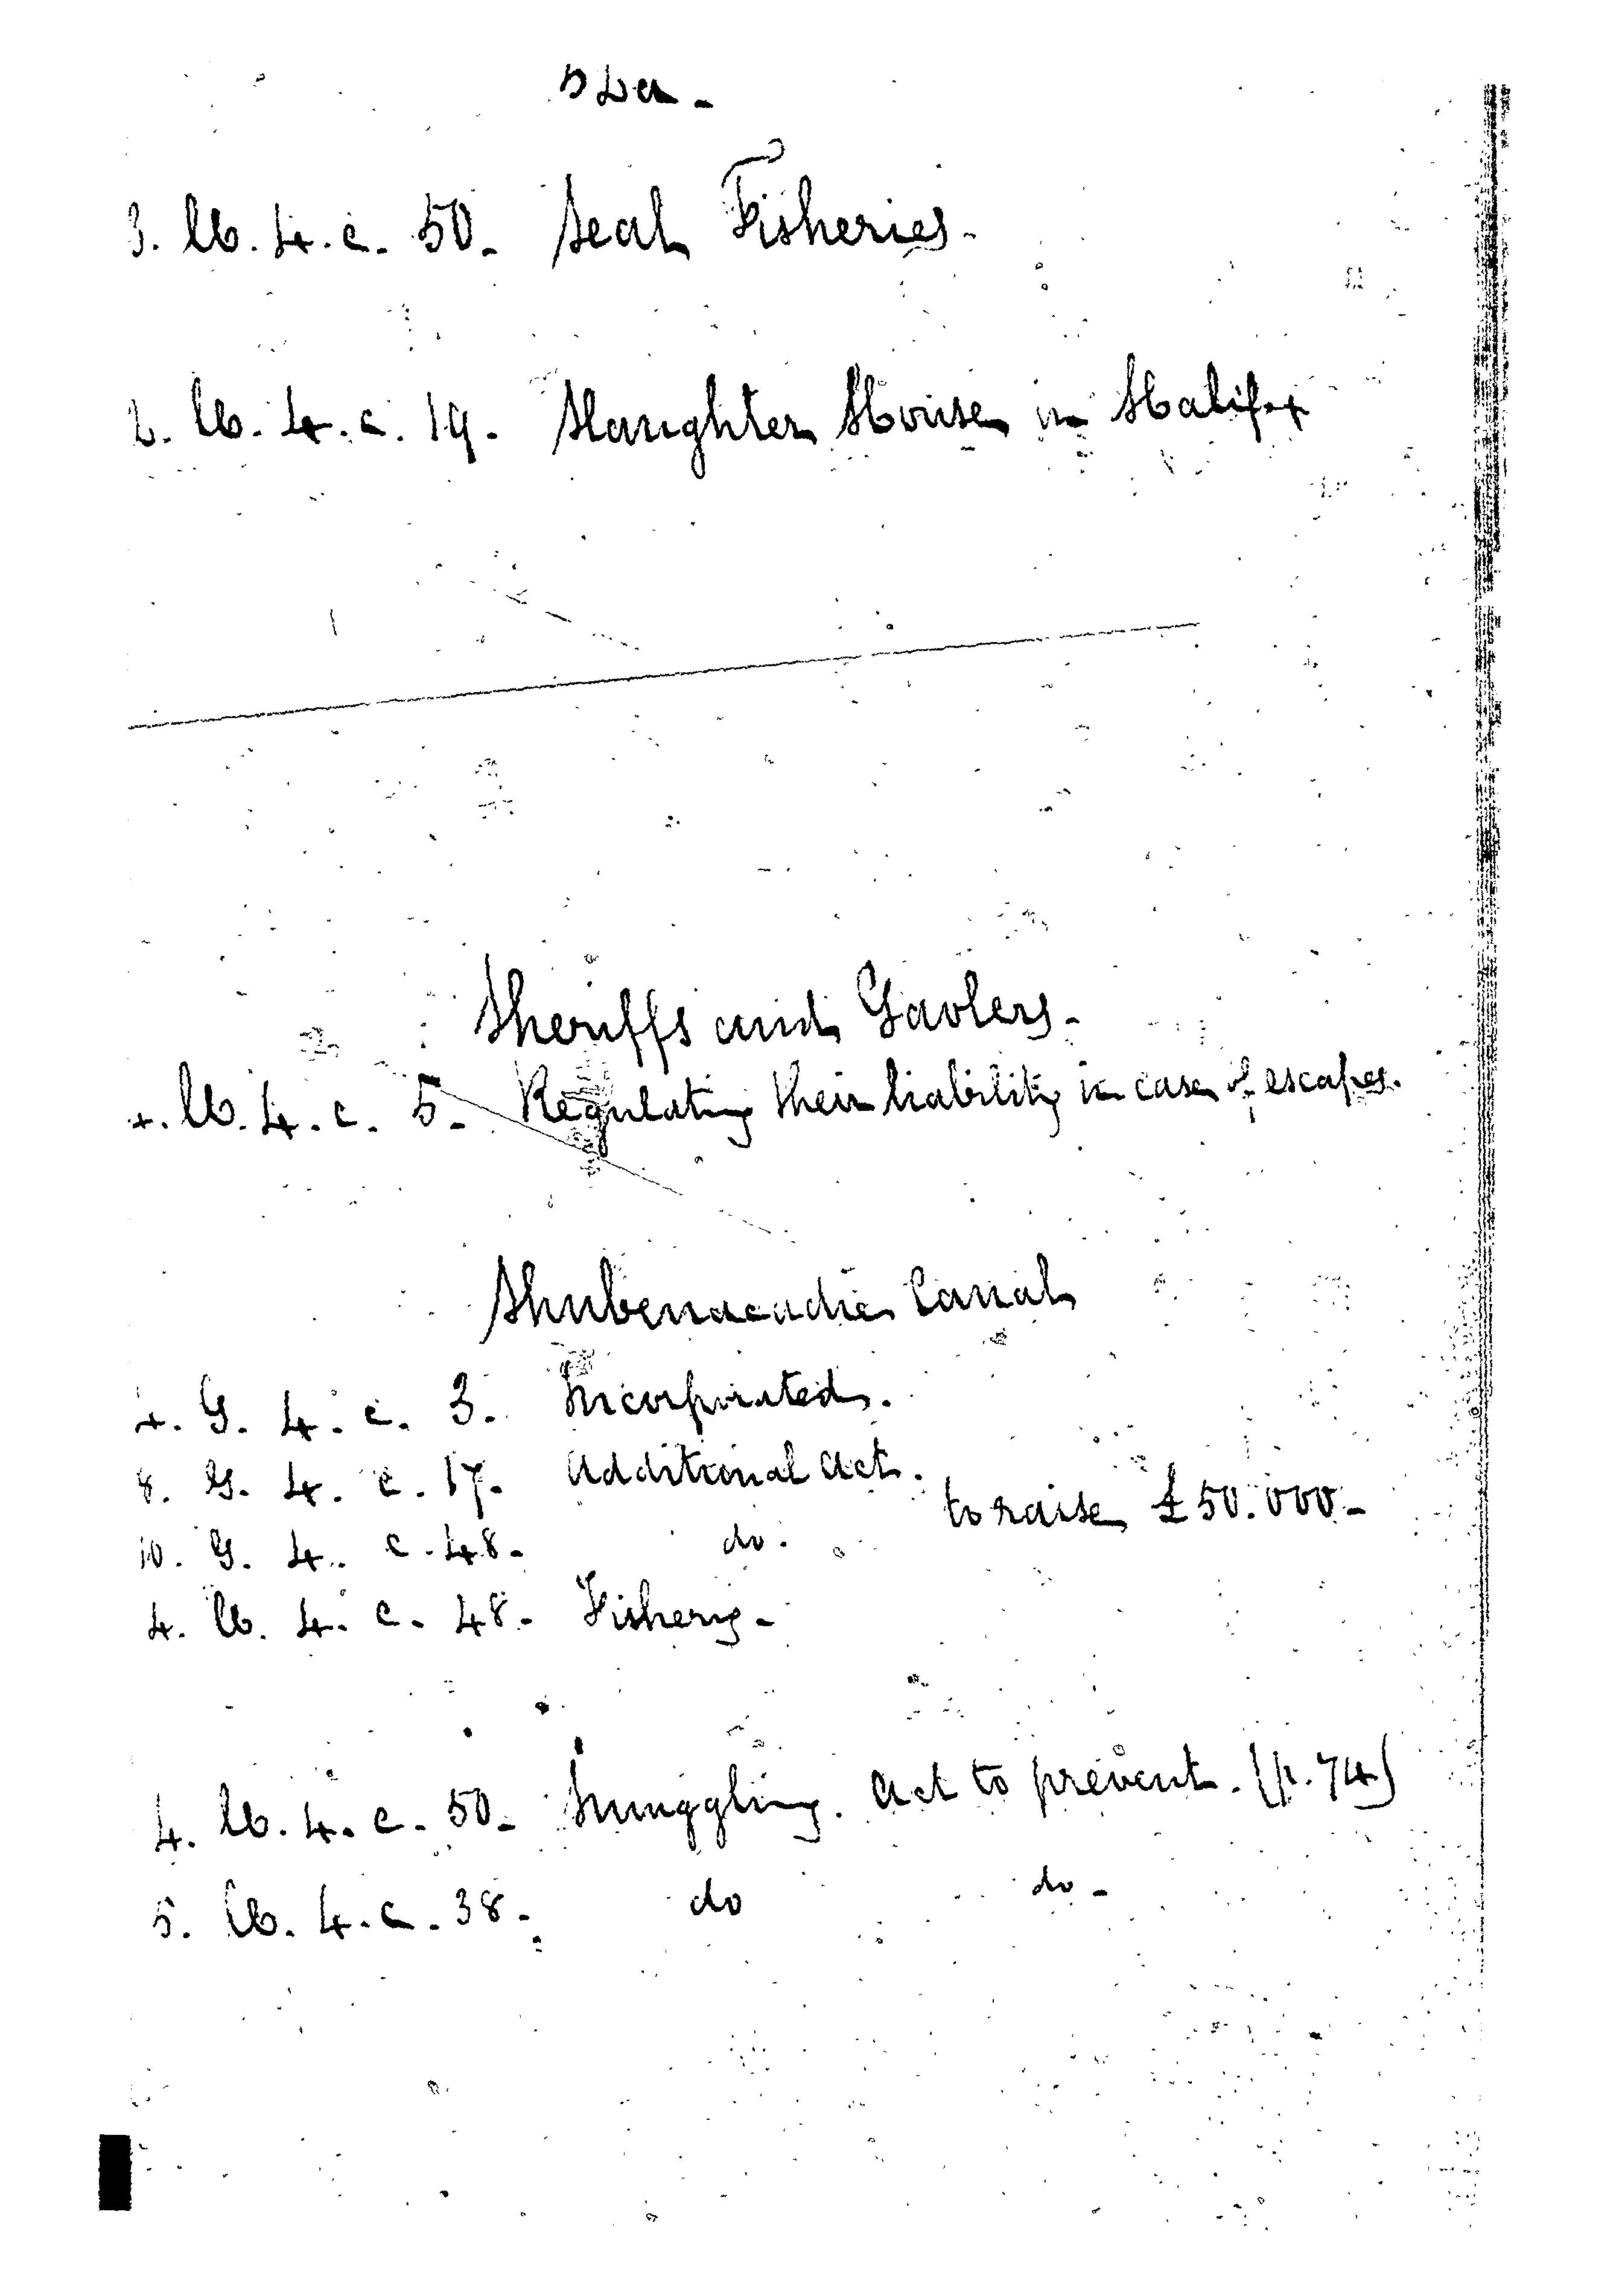 3. W. 4. c. 50. Seal Fisheries.
2. W. 4. c. 19. Slaughter House in Halifax
Sheriffs and Gaolers.
W. 4. c. 5. Regulating their liability in case of escapes.
Shubenacadie Canal
G. 4. c. 3. Incorporated.
8. G. 4. c. 17. Additional Act.
10. G. 4. c. 48. do. to raise £50.000
4. W. 4. c. 48. Fishery
4. W. 4. c. 50. Smuggling. Act to prevent. (p. 74)
5. W. 4. c. 38. do do